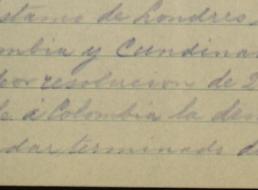 stamo de Londres,
mbia y Cundina
por resolucion de 2
á Colombia la deu
dar terminado d